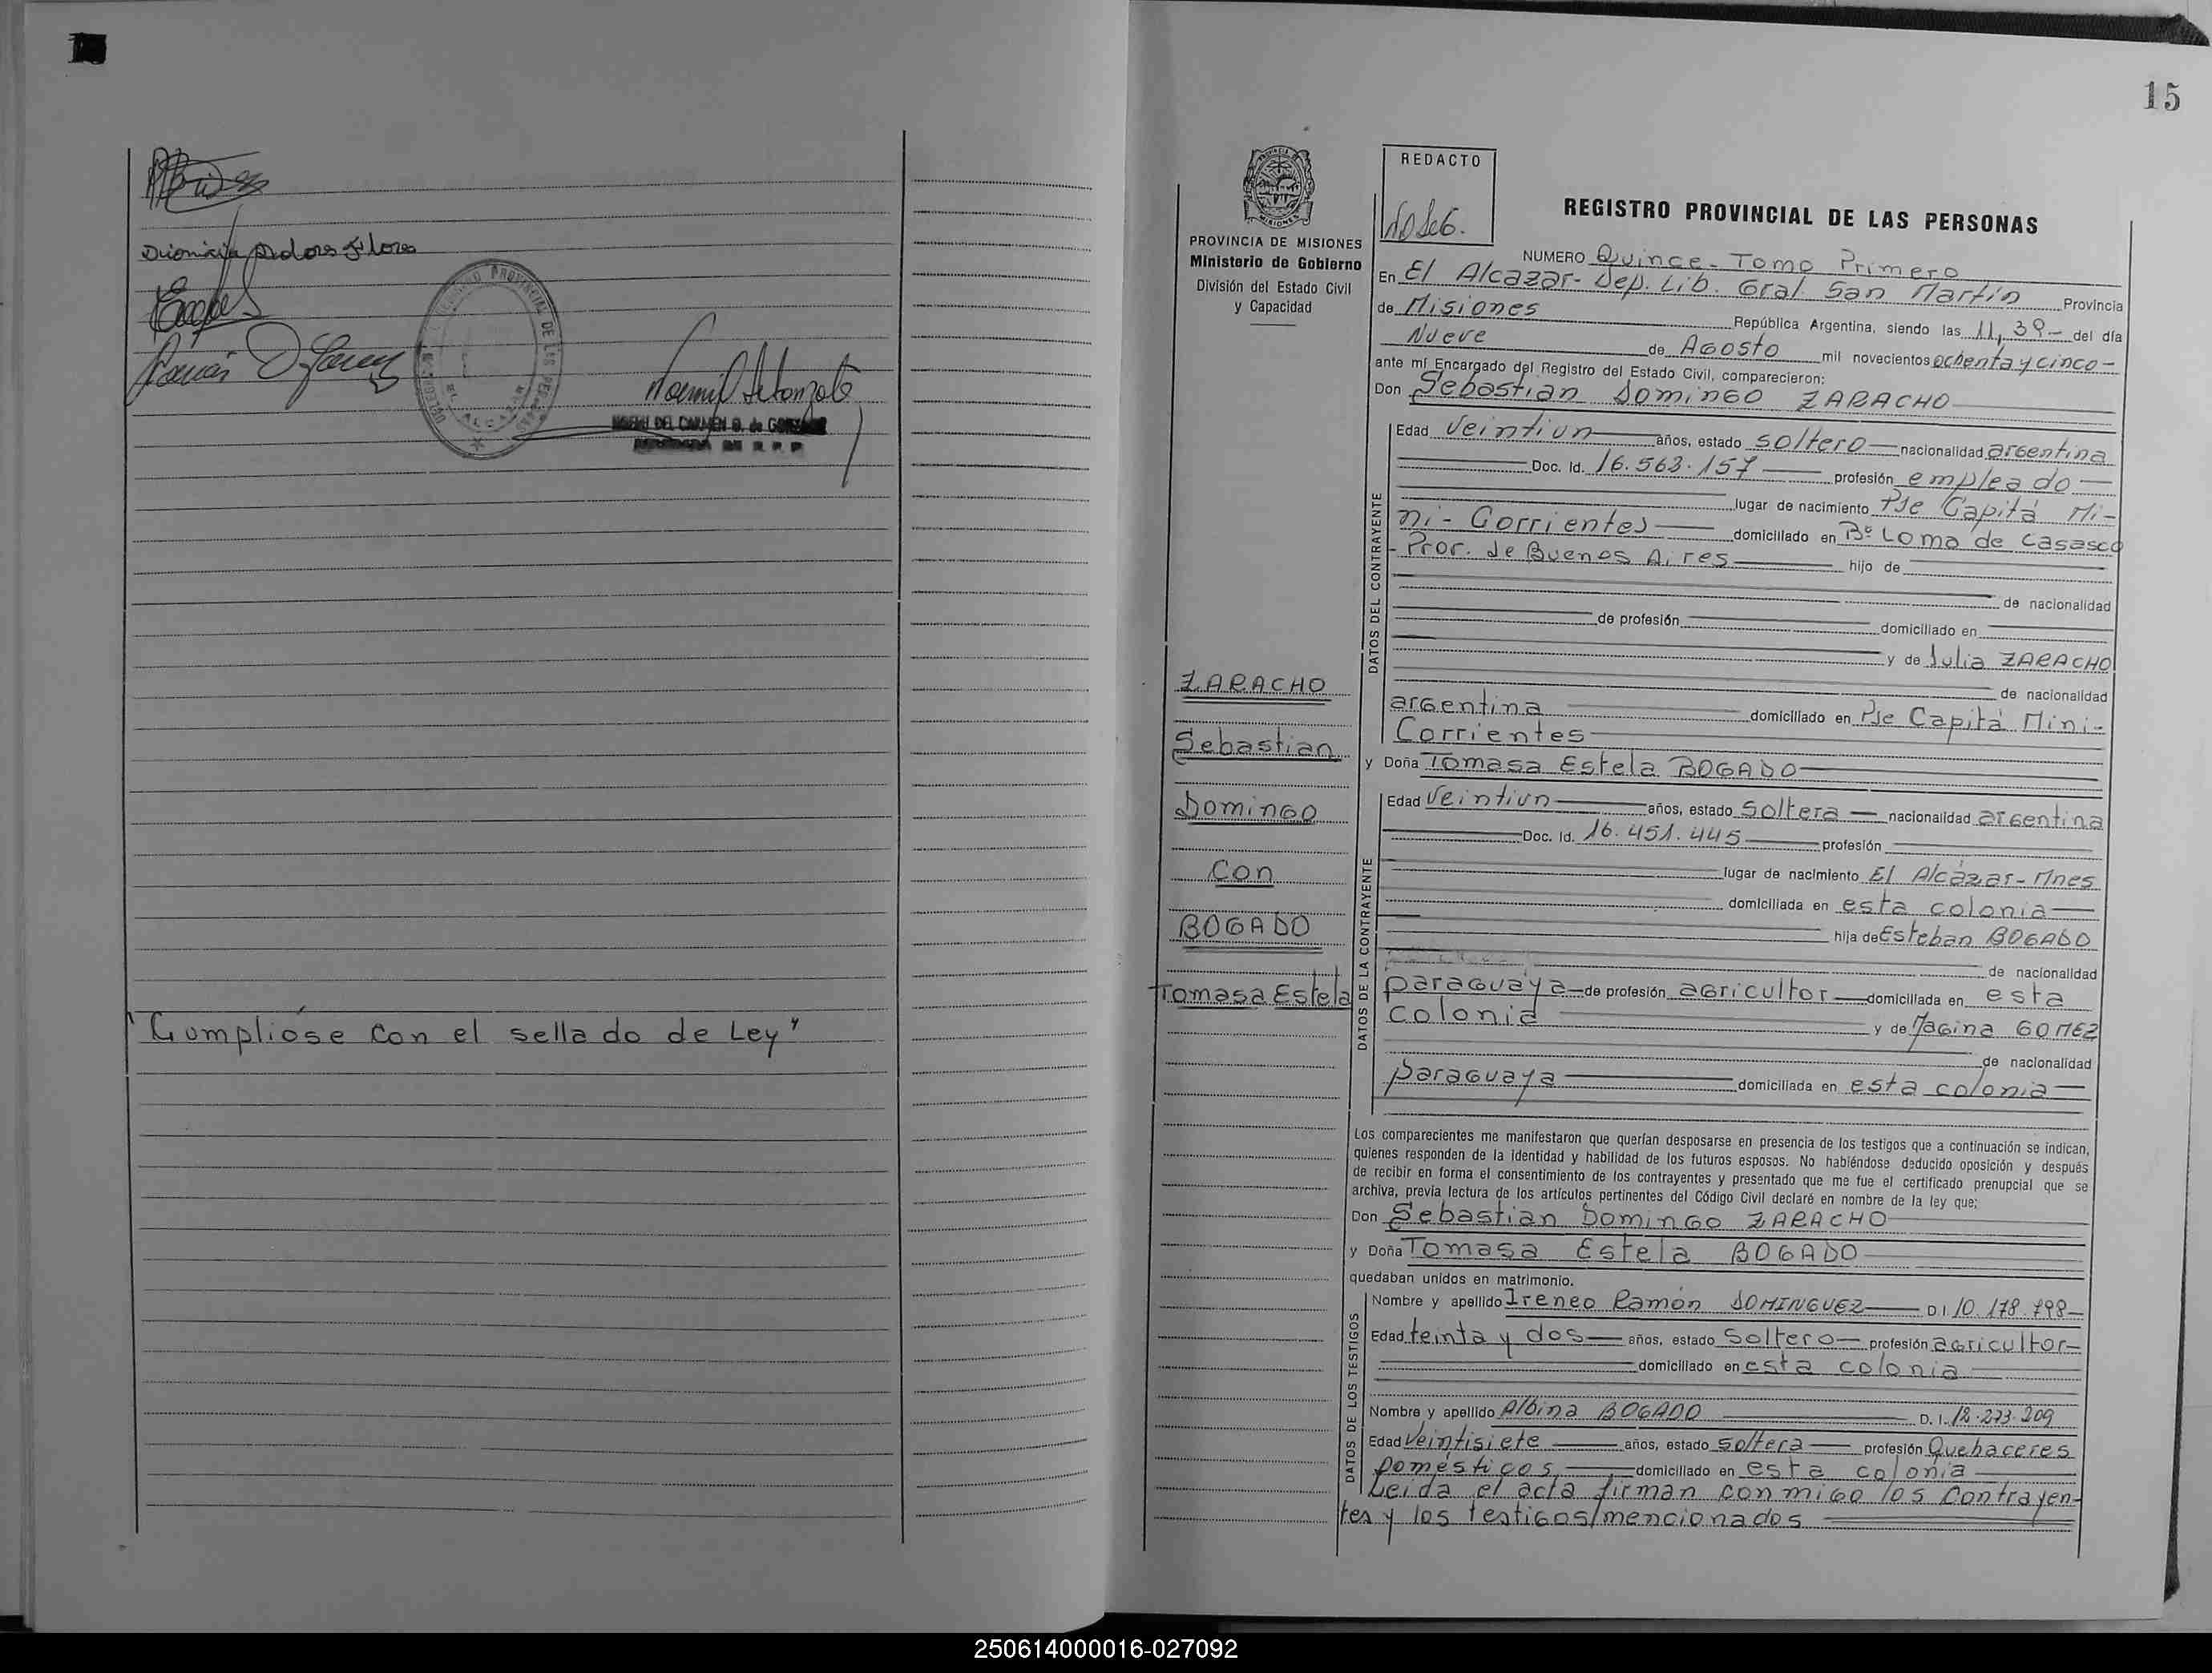 Dionicia Dolores Flores
REGISTRO PROVINCIAL DE LAS PERSONAS
"Cumplióse con el sellado de Ley"
15
PROVINCIA DE MISIONES
Ministerio de Gobierno
División del Estado Civil
y Capacidad
REDACTO
REGISTRO PROVINCIAL DE LAS PERSONAS
NUMERO Quince - Tomo Primero
En El Alcazar - Dep. Lib. Gral. San Martín Provincia
de Misiones República Argentina, siendo las 11,30 - del día
Nueve de Agosto mil novecientos ochenta y cinco -
ante mí Encargado del Registro del Estado Civil, comparecieron:
Don Sebastian Domingo ZARACHO
DATOS DEL CONTRAYENTE
Edad Veintiun años, estado soltero nacionalidad argentina
Doc. Id. 16.563.157 profesión empleado
lugar de nacimiento Pje Capitá Mi-
ni - Corrientes domiciliado en Bº Loma de Casasco
- Prov. de Buenos Aires hijo de
de nacionalidad
de profesión domiciliado en
y de Julia ZARACHO
de nacionalidad
argentina domiciliado en Pje Capitá Mini -
Corrientes
y Doña Tomasa Estela BOGADO
ZARACHO
Sebastian
Domingo
Con
BOGADO
Tomasa Estela
DATOS DE LA CONTRAYENTE
Edad Veintiun años, estado soltera nacionalidad argentina
Doc. Id. 16.451.445 profesión
lugar de nacimiento El Alcázar - Mnes
domiciliada en esta colonia
hija de Esteban BOGADO
de nacionalidad
paraguaya de profesión agricultor domiciliada en esta
colonia y de Magina GOMEZ
de nacionalidad
paraguaya domiciliada en esta colonia
Los comparecientes me manifestaron que querían desposarse en presencia de los testigos que a continuación se indican,
quienes responden de la identidad y habilidad de los futuros esposos. No habiéndose deducido oposición y después
de recibir en forma el consentimiento de los contrayentes y presentado que me fue el certificado prenupcial que se
archiva, previa lectura de los artículos pertinentes del Código Civil declaré en nombre de la ley que:
Don Sebastian Domingo ZARACHO
y Doña Tomasa Estela BOGADO
quedaban unidos en matrimonio.
DATOS DE LOS TESTIGOS
Nombre y apellido Ireneo Ramón DOMINGUEZ D.I. 10.178.798
Edad teinta y dos años, estado Soltero profesión agricultor
domiciliado en esta colonia
Nombre y apellido Albina BOGADO D. I. 12.273.209
Edad Veintisiete años, estado soltera profesión Quehaceres
Domésticos domiciliado en esta colonia
Leida el acta firman conmigo los Contrayen-
tes y los testigos mencionados
250614000016-027092